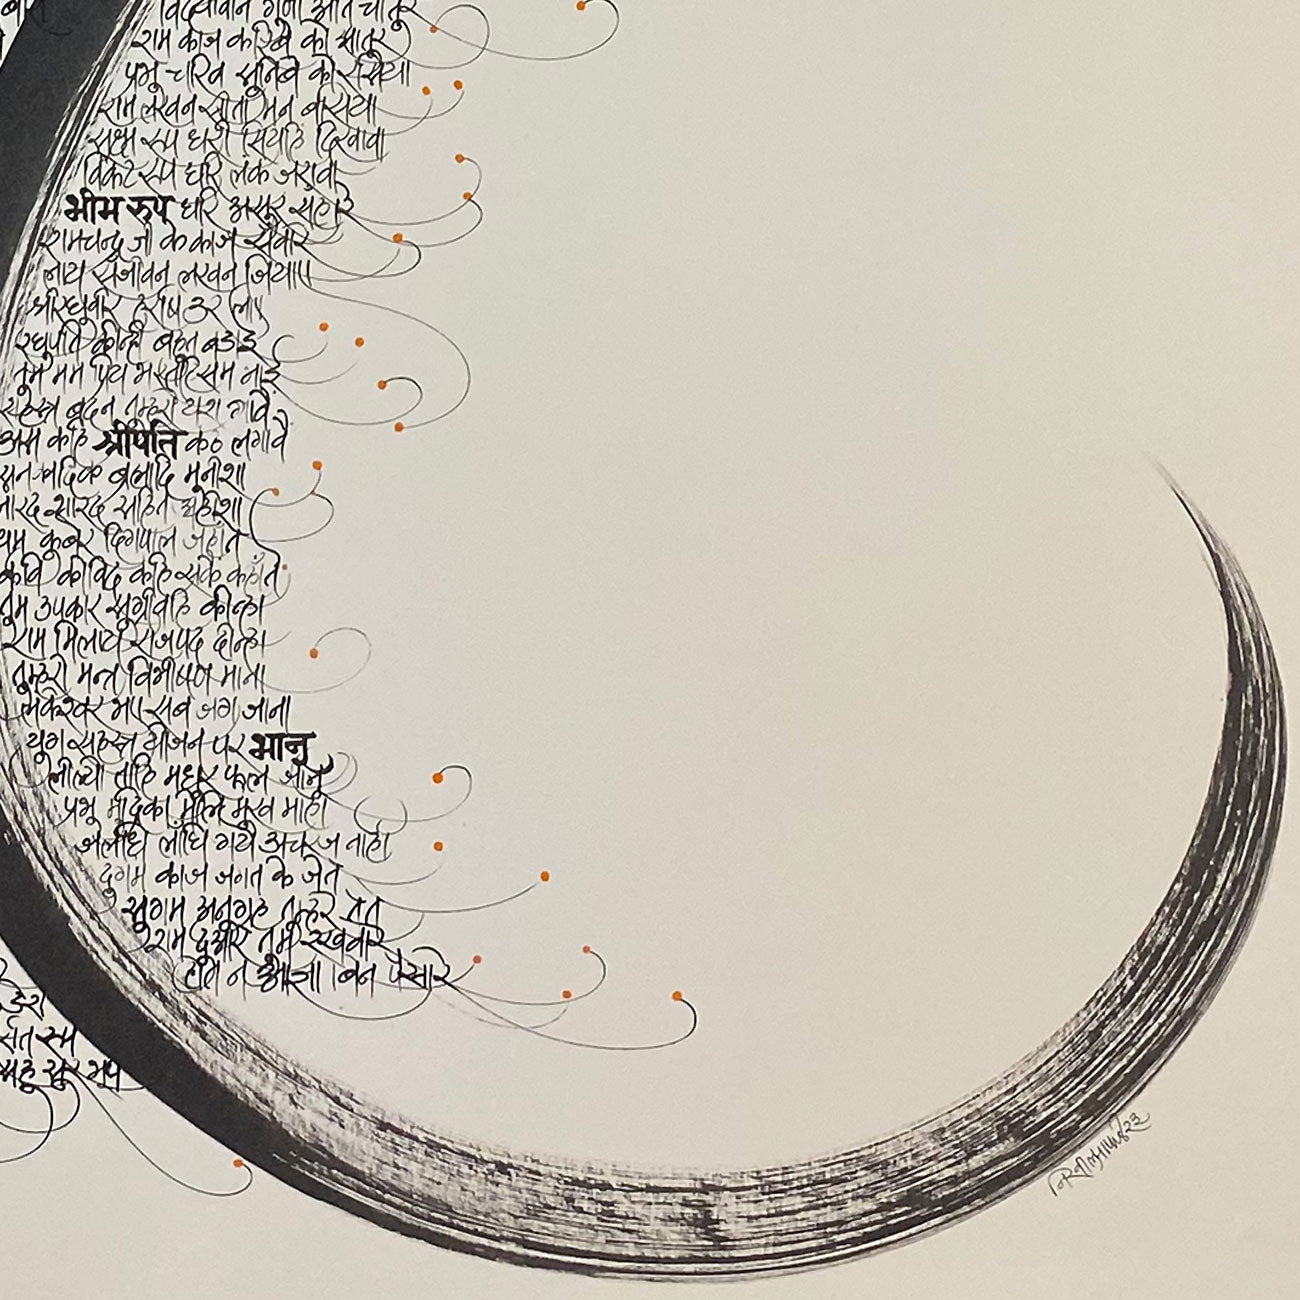 विद्यावान गुणी अति चातुर
राम काज करिबे को आतुर
प्रभु चरित्र सुनिबे को रसिया
राम लखन सीता मन बसिया
सूक्ष्म रूप धरी सियहिं दिखावा
विकट रूप धरि लंक जरावा
भीम रूप धरि असुर संहारे
रामचन्द्र जी के काज संवारे
लाय संजीवन लखन जियाए
श्रीरघुवीर हरषि उर लाए
रघुपति कीन्ही बहुत बडाई
तुम मम प्रिय भरतहिसम भाई
सहस्त्र बदन तुम्हरो यश गावै
अस कहि श्रीपति कंठ लगावै
सनकादिक ब्रह्मादि मुनीशा
नारद सारद सहित अहीशा
यम कुबेर दिगपाल जहाँते
कवि कोविद कहि सके कहाँते
तुम उपकार सुग्रीवहि कीन्हा
राम मिलाय राजपद दीन्हा
तुम्हरो मन्त्र विभीषण माना
लंकेश्वर भए सब जग जाना
युग सहस्त्र योजन पर भानु
लील्यो ताहि मधुर फल जानू
प्रभु मुद्रिका मेलि मुख माही
जलधि लांघि गये अचरज नाही
दुर्गम काज जगत के जेते
सुगम अनुग्रह तुम्हरे तेते
राम दुआरे तुम रखवारे
होत न आज्ञा बिन पैसारे
डेरा
रूप
सुर भूप